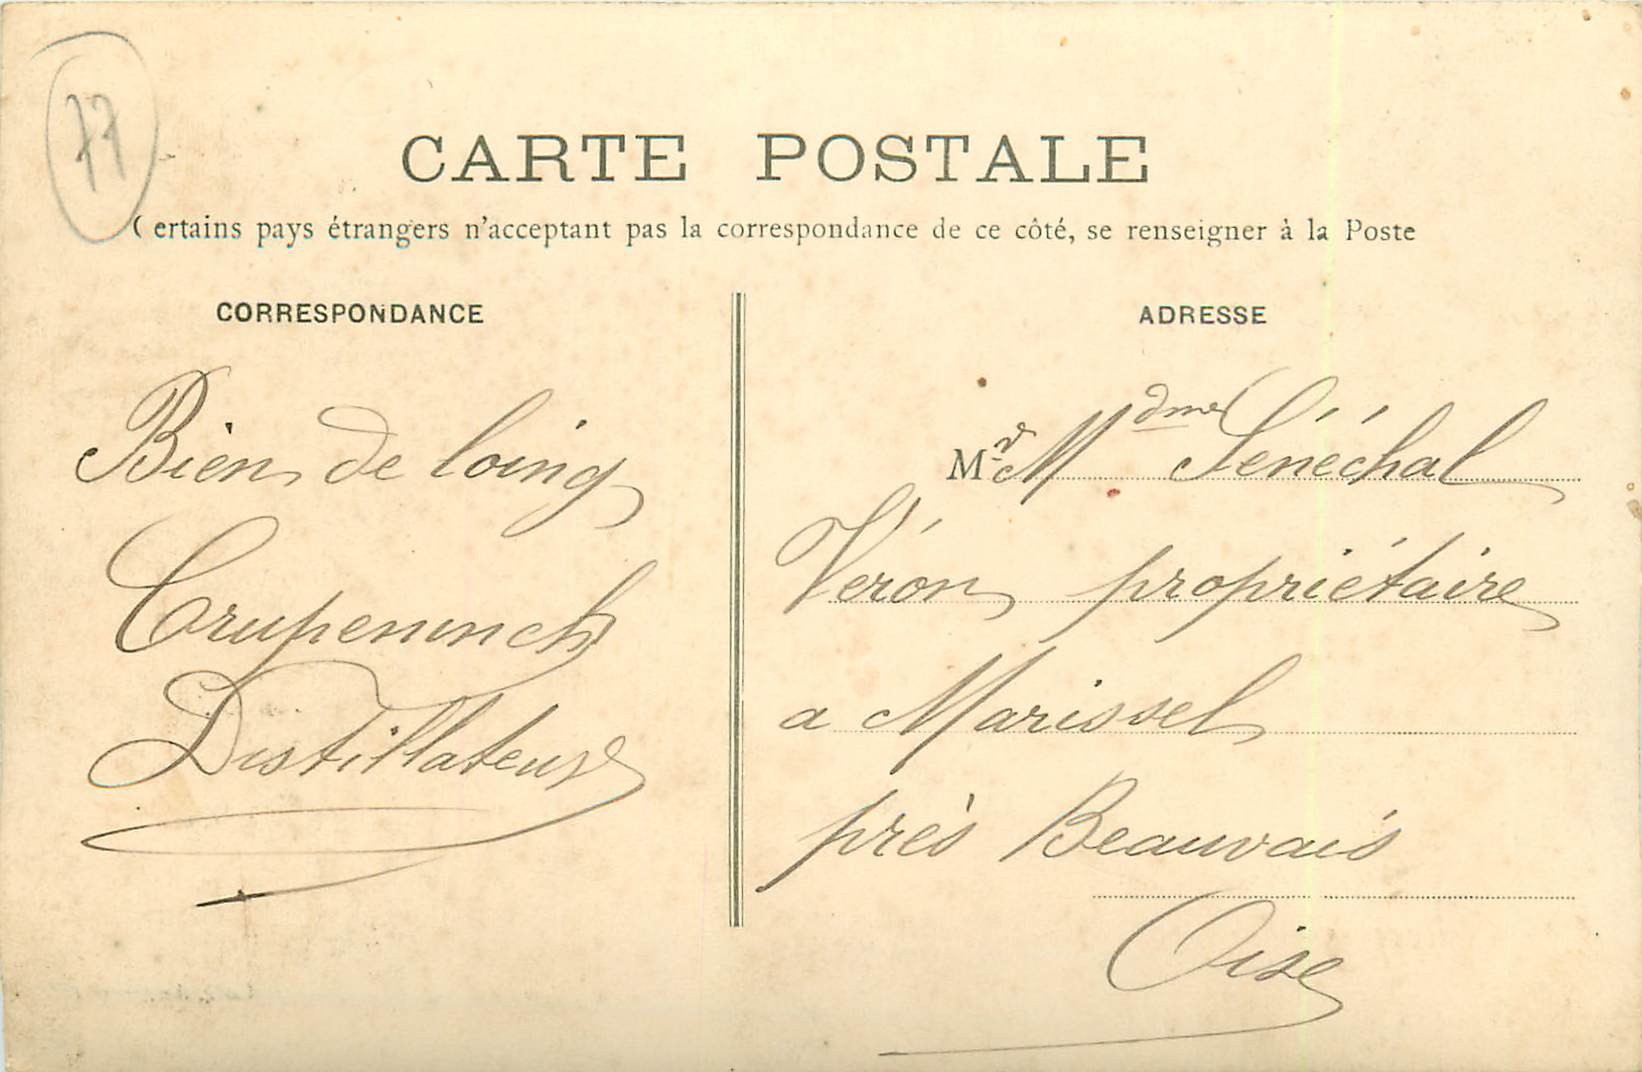 77
CARTE POSTALE
Certains pays étrangers n'acceptant pas la correspondance de ce côté, se renseigner à la Poste
CORRESPONDANCE
Bien de loing
Crupeninch
Distillateur
ADRESSE
M.r M dme Sénéchal
Véron propriétaire
a Marissel
près Beauvais
Oise